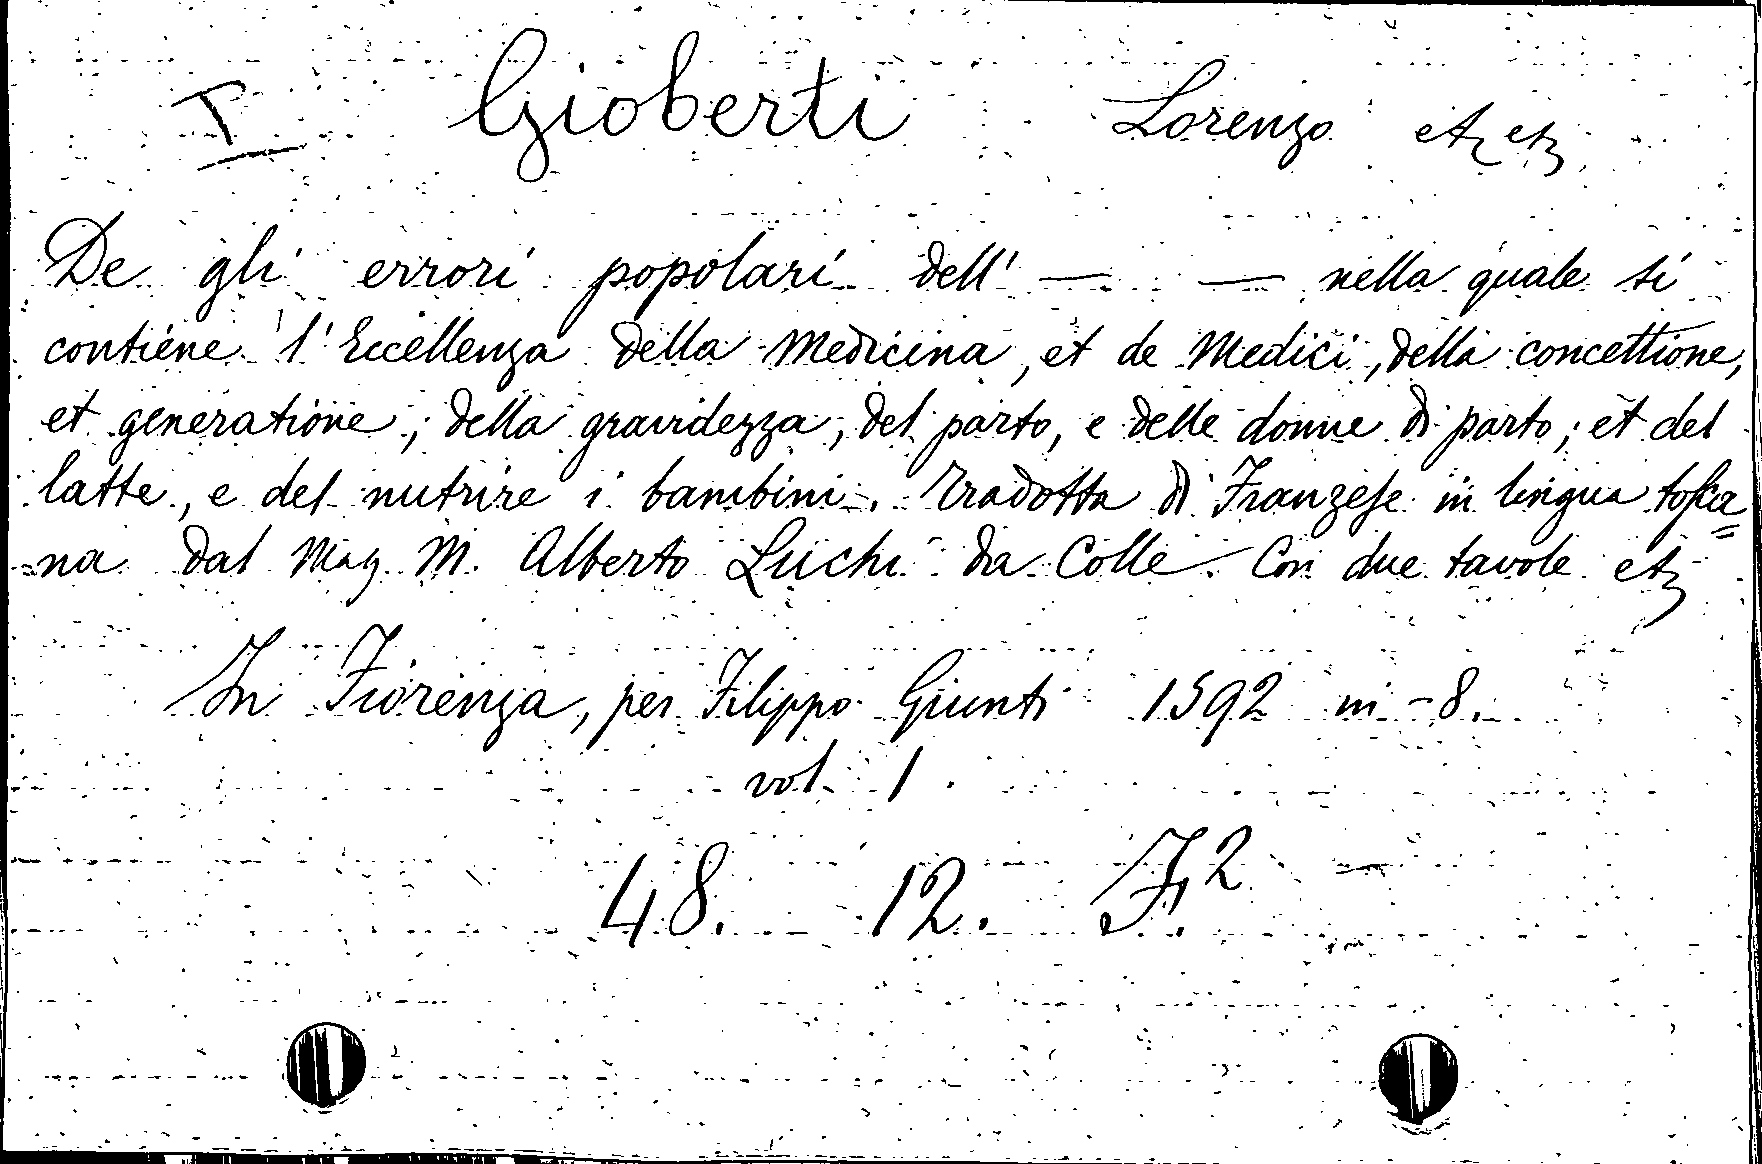 I Gioberti Lorenzo etz etz
De gli errori popolari dell' — — nella quale si
contiene l'Eccellenza della Medicina, et de Medici, della concettione,
et generatione, della gravidezza, del parto, e delle donne di parto; et del
latte, e del nutrire i bambini. Tradotta di Franzeſe in lingua toſca=
=na dal Mag. M. Alberto Luchi da Colle. Con due tavole etz
In Fiorenza, per Filippo Giunti 1592 in-8.
vol. 1.
48. 12. F.2